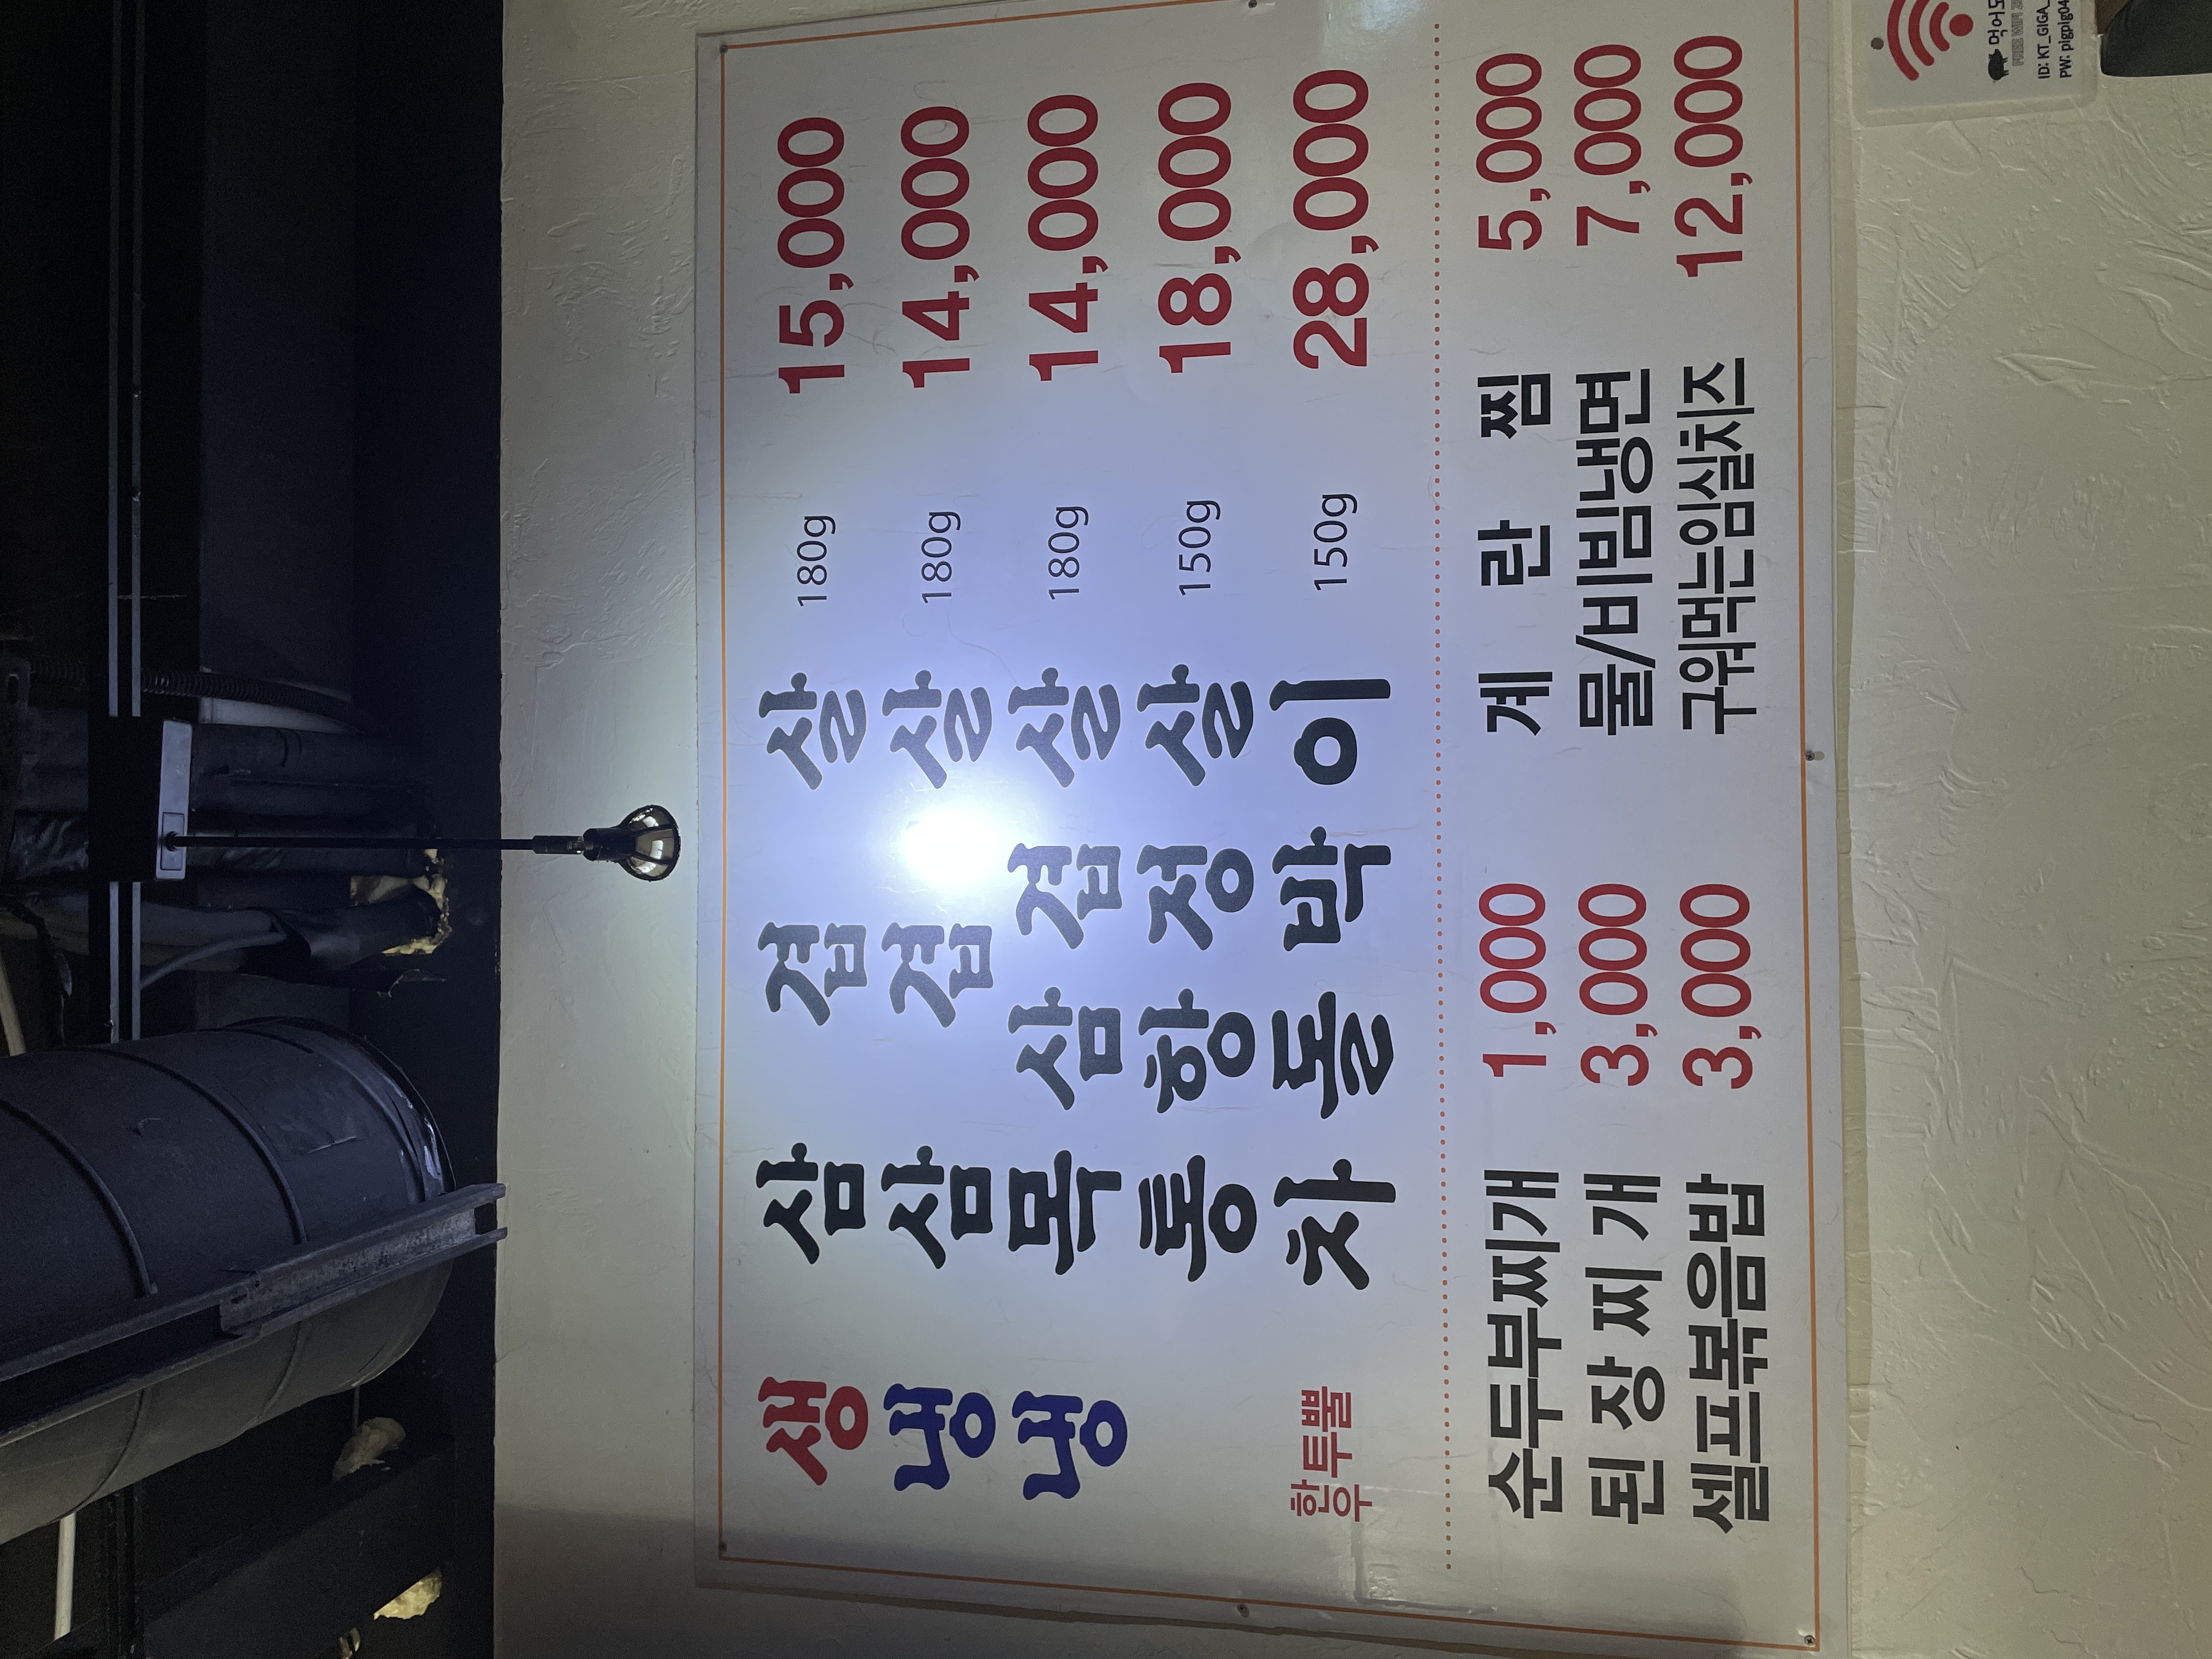 생 삼 겹 살 180g 15,000
냉 삼 겹 살 180g 14,000
냉 목 삼 겹 살 180g 14,000
통 항 정 살 150g 18,000
한우 투뿔 차 돌 박 이 150g 28,000
순두부찌개 1,000 계 란 찜 5,000
된 장 찌 개 3,000 물/비빔냉면 7,000
셀프볶음밥 3,000 구워먹는임실치즈 12,000
먹어도
ID: KT_GIGA_
PW: pigpig04